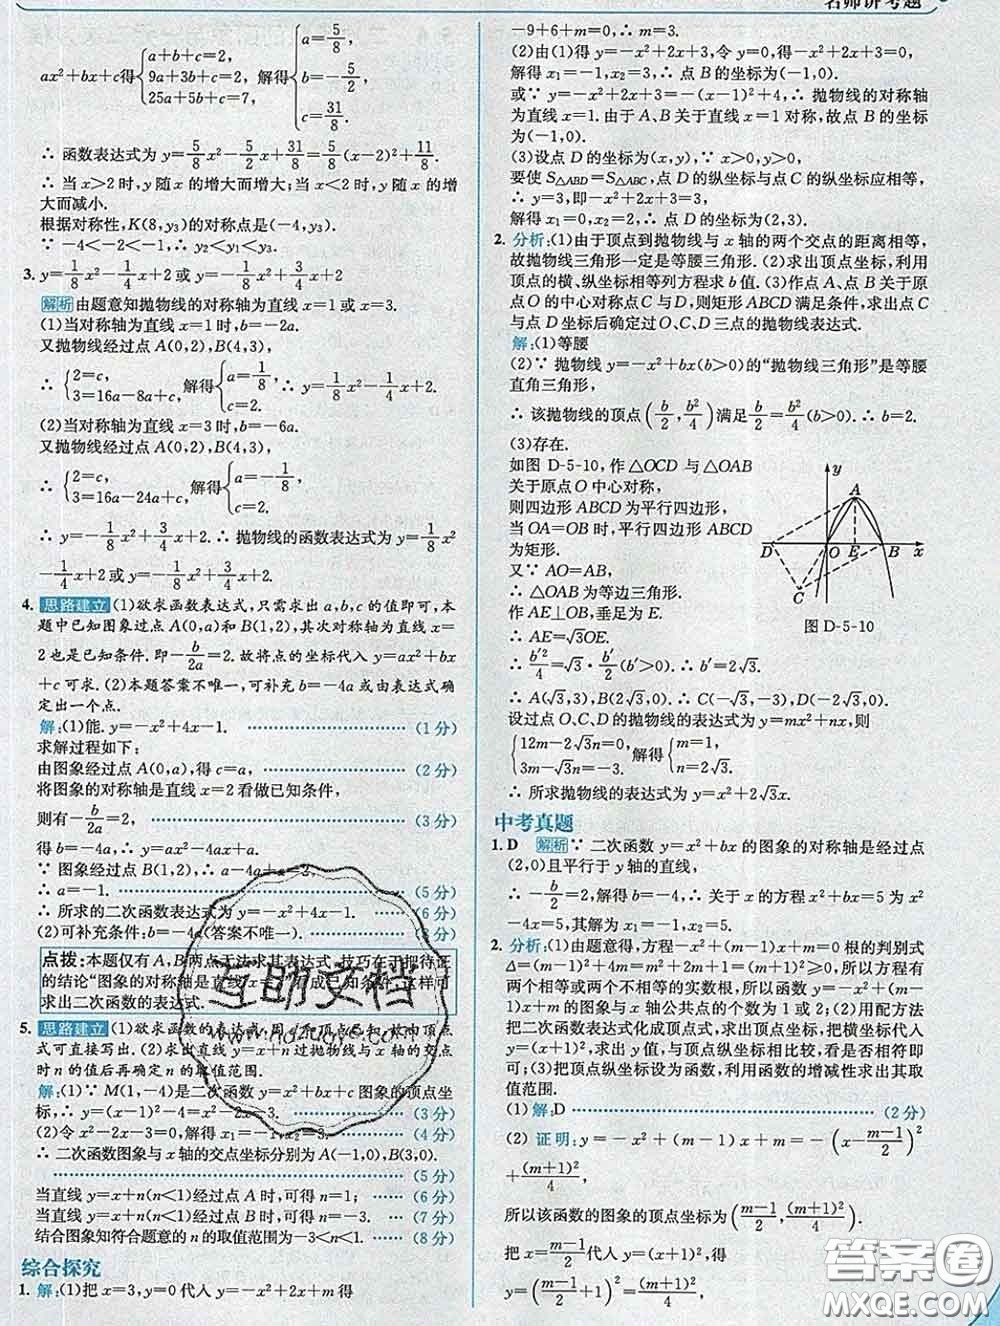 名师讲考题
ax²+bx+c得{4a+2b+c=2, 9a+3b+c=2, 25a+5b+c=7. 解得{a=5/8, b=-5/2, c=31/8.
∴ 函数表达式为 y=5/8x²-5/2x+31/8=5/8(x-2)²+11/8.
∴ 当 x>2 时,y 随 x 的增大而增大;当 x<2 时,y 随 x 的增
大而减小.
根据对称性,K(8,y₃)的对称点是(-4,y₃).
∵ -4<-2<-1,∴ y₂<y₁<y₃.
3. y=1/8x²-1/4x+2 或 y=-1/8x²+3/4x+2
解析 由题意知抛物线的对称轴为直线 x=1 或 x=3.
(1)当对称轴为直线 x=1 时,b=-2a.
又抛物线经过点 A(0,2),B(4,3),
∴ {2=c, 3=16a-8a+c, 解得{a=1/8, c=2. ∴ y=1/8x²-1/4x+2.
(2)当对称轴为直线 x=3 时,b=-6a.
又抛物线经过点 A(0,2),B(4,3),
∴ {2=c, 3=16a-24a+c, 解得{a=-1/8, c=2.
∴ y=-1/8x²+3/4x+2.∴ 抛物线的函数表达式为 y=1/8x²
-1/4x+2 或 y=-1/8x²+3/4x+2.
4. 思路建立 (1)欲求函数表达式,只需求出 a,b,c 的值即可,本
题中已知图象过点 A(0,a)和 B(1,2),其次对称轴为直线 x=
2 也是已知条件.即-b/2a=2.故将点的坐标代入 y=ax²+bx
+c 可求.(2)本题答案不唯一,可补充 b=-4a 或由表达式确
定出一个点.
解:(1)能. y=-x²+4x-1. (1分)
求解过程如下:
由图象经过点 A(0,a),得 c=a, (2分)
将图象的对称轴是直线 x=2 看做已知条件,
则有-b/2a=2, (3分)
得 b=-4a,∴ y=ax²-4ax+a.
∵ 图象经过点 B(1,2),∴ a-4a+a=2.
∴ a=-1. (5分)
∴ 所求的二次函数表达式为 y=-x²+4x-1. (6分)
(2)可补充条件:b=-4a(答案不唯一). (8分)
点拨:本题仅有 A,B 两点无法求其表达式,技巧在于把待证
的结论“图象的对称轴是直线 x=2”当成已知条件,这样可
求出二次函数的表达式.
5. 思路建立 (1)欲求函数的表达式,因 a=1,顶点已知,故由顶点
式可直接写出.(2)求出直线 y=x+n 过抛物线与 x 轴的交点
时 n 的值后再确定 n 的取值范围.
解:(1)∵ M(1,-4)是二次函数 y=x²+bx+c 图象的顶点坐
标,∴ y=(x-1)²-4=x²-2x-3. (3分)
(2)令 x²-2x-3=0,解得 x₁=-1,x₂=3, (4分)
∴ 二次函数图象与 x 轴的交点坐标分别为 A(-1,0),B(3,0).
(5分)
当直线 y=x+n(n<1)经过点 A 时,可得 n=1; (6分)
当直线 y=x+n(n<1)经过点 B 时,可得 n=-3. (7分)
结合图象知符合题意的 n 的取值范围为-3<n<1. (8分)
综合探究
1. 解:(1)把 x=3,y=0 代入 y=-x²+2x+m 得
-9+6+m=0,∴ m=3.
(2)由(1)得 y=-x²+2x+3,令 y=0,得-x²+2x+3=0,
解得 x₁=-1,x₂=3,∴ 点 B 的坐标为(-1,0).
或∵ y=-x²+2x+3=-(x-1)²+4,∴ 抛物线的对称轴
为直线 x=1.由于 A、B 关于直线 x=1 对称,故点 B 的坐标为
(-1,0).
(3)设点 D 的坐标为(x,y),∵ x>0,y>0,
要使 S△ABD=S△ABC,点 D 的纵坐标与点 C 的纵坐标应相等,
∴ y=3,即-x²+2x+3=3,
解得 x₁=0,x₂=2,∴ 点 D 的坐标为(2,3).
2. 分析:(1)由于顶点到抛物线与 x 轴的两个交点的距离相等,
故抛物线三角形一定是等腰三角形.(2)求出顶点坐标,利用
顶点的横、纵坐标相等列方程求 b 值.(3)作点 A、B 关于原
点 O 的中心对称点 C、D,则矩形 ABCD 满足条件,求出点 C
与点 D 坐标后确定过 O、C、D 三点的抛物线表达式.
解:(1)等腰
(2)∵ 抛物线 y=-x²+bx(b>0)的“抛物线三角形”是等腰
直角三角形,
∴ 该抛物线的顶点(b/2,b²/4)满足b/2=b²/4(b>0).∴ b=2.
(3)存在.
如图 D-5-10,作△OCD 与△OAB
关于原点 O 中心对称,
则四边形 ABCD 为平行四边形,
当 OA=OB 时,平行四边形 ABCD
为矩形.
又∵ AO=AB,
∴ △OAB 为等边三角形.
作 AE⊥OB,垂足为 E.
∴ AE=√3OE.
∴ b′²/4=√3·b′/2(b′>0).∴ b′=2√3.
∴ A(√3,3),B(2√3,0).∴ C(-√3,-3),D(-2√3,0).
y
A
D
O
E
B
x
C
图 D-5-10
设过点 O、C、D 的抛物线的表达式为 y=mx²+nx,则
{12m-2√3n=0, 3m-√3n=-3. 解得{m=1, n=2√3.
∴ 所求抛物线的表达式为 y=x²+2√3x.
中考真题
1. D 解析 ∵ 二次函数 y=x²+bx 的图象的对称轴是经过点
(2,0)且平行于 y 轴的直线,
∴ -b/2=2,解得 b=-4,∴ 关于 x 的方程 x²+bx=5 为 x²
-4x=5,其解为 x₁=-1,x₂=5.
2. 分析:(1)由题意得,方程-x²+(m-1)x+m=0 根的判别式
Δ=(m-1)²+4m=(m+1)²⩾0,所以方程-x²+(m-1)x+m=0 有
两个相等或两个不相等的实数根,所以函数 y=-x²+(m-
1)x+m 的图象与 x 轴公共点的个数为 1 或 2;(2)用配方法
把二次函数表达式化成顶点式,求出顶点坐标,把横坐标代入
y=(x+1)²,求出 y 值,与顶点纵坐标相比较,看是否相符即
可;(3)把顶点纵坐标设为函数,利用函数的增减性求出其取
值范围.
(1)解:D (2分)
(2)证明:y=-x²+(m-1)x+m=-(x-m-1/2)²
+(m+1)²/4,
所以该函数的图象的顶点坐标为(m-1/2,(m+1)²/4).
把 x=m-1/2代入 y=(x+1)²,得
y=(m-1/2+1)²=(m+1)²/4,
互助文档
答案圈
MXQE.COM